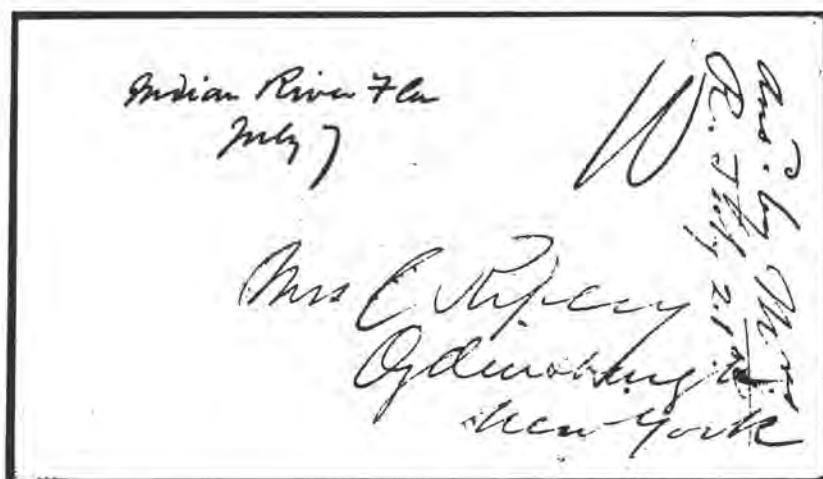 Indian River Fla
July 7
10
Mrs C Ripley
Ogdensburgh
New York
Ans. by
R. 21